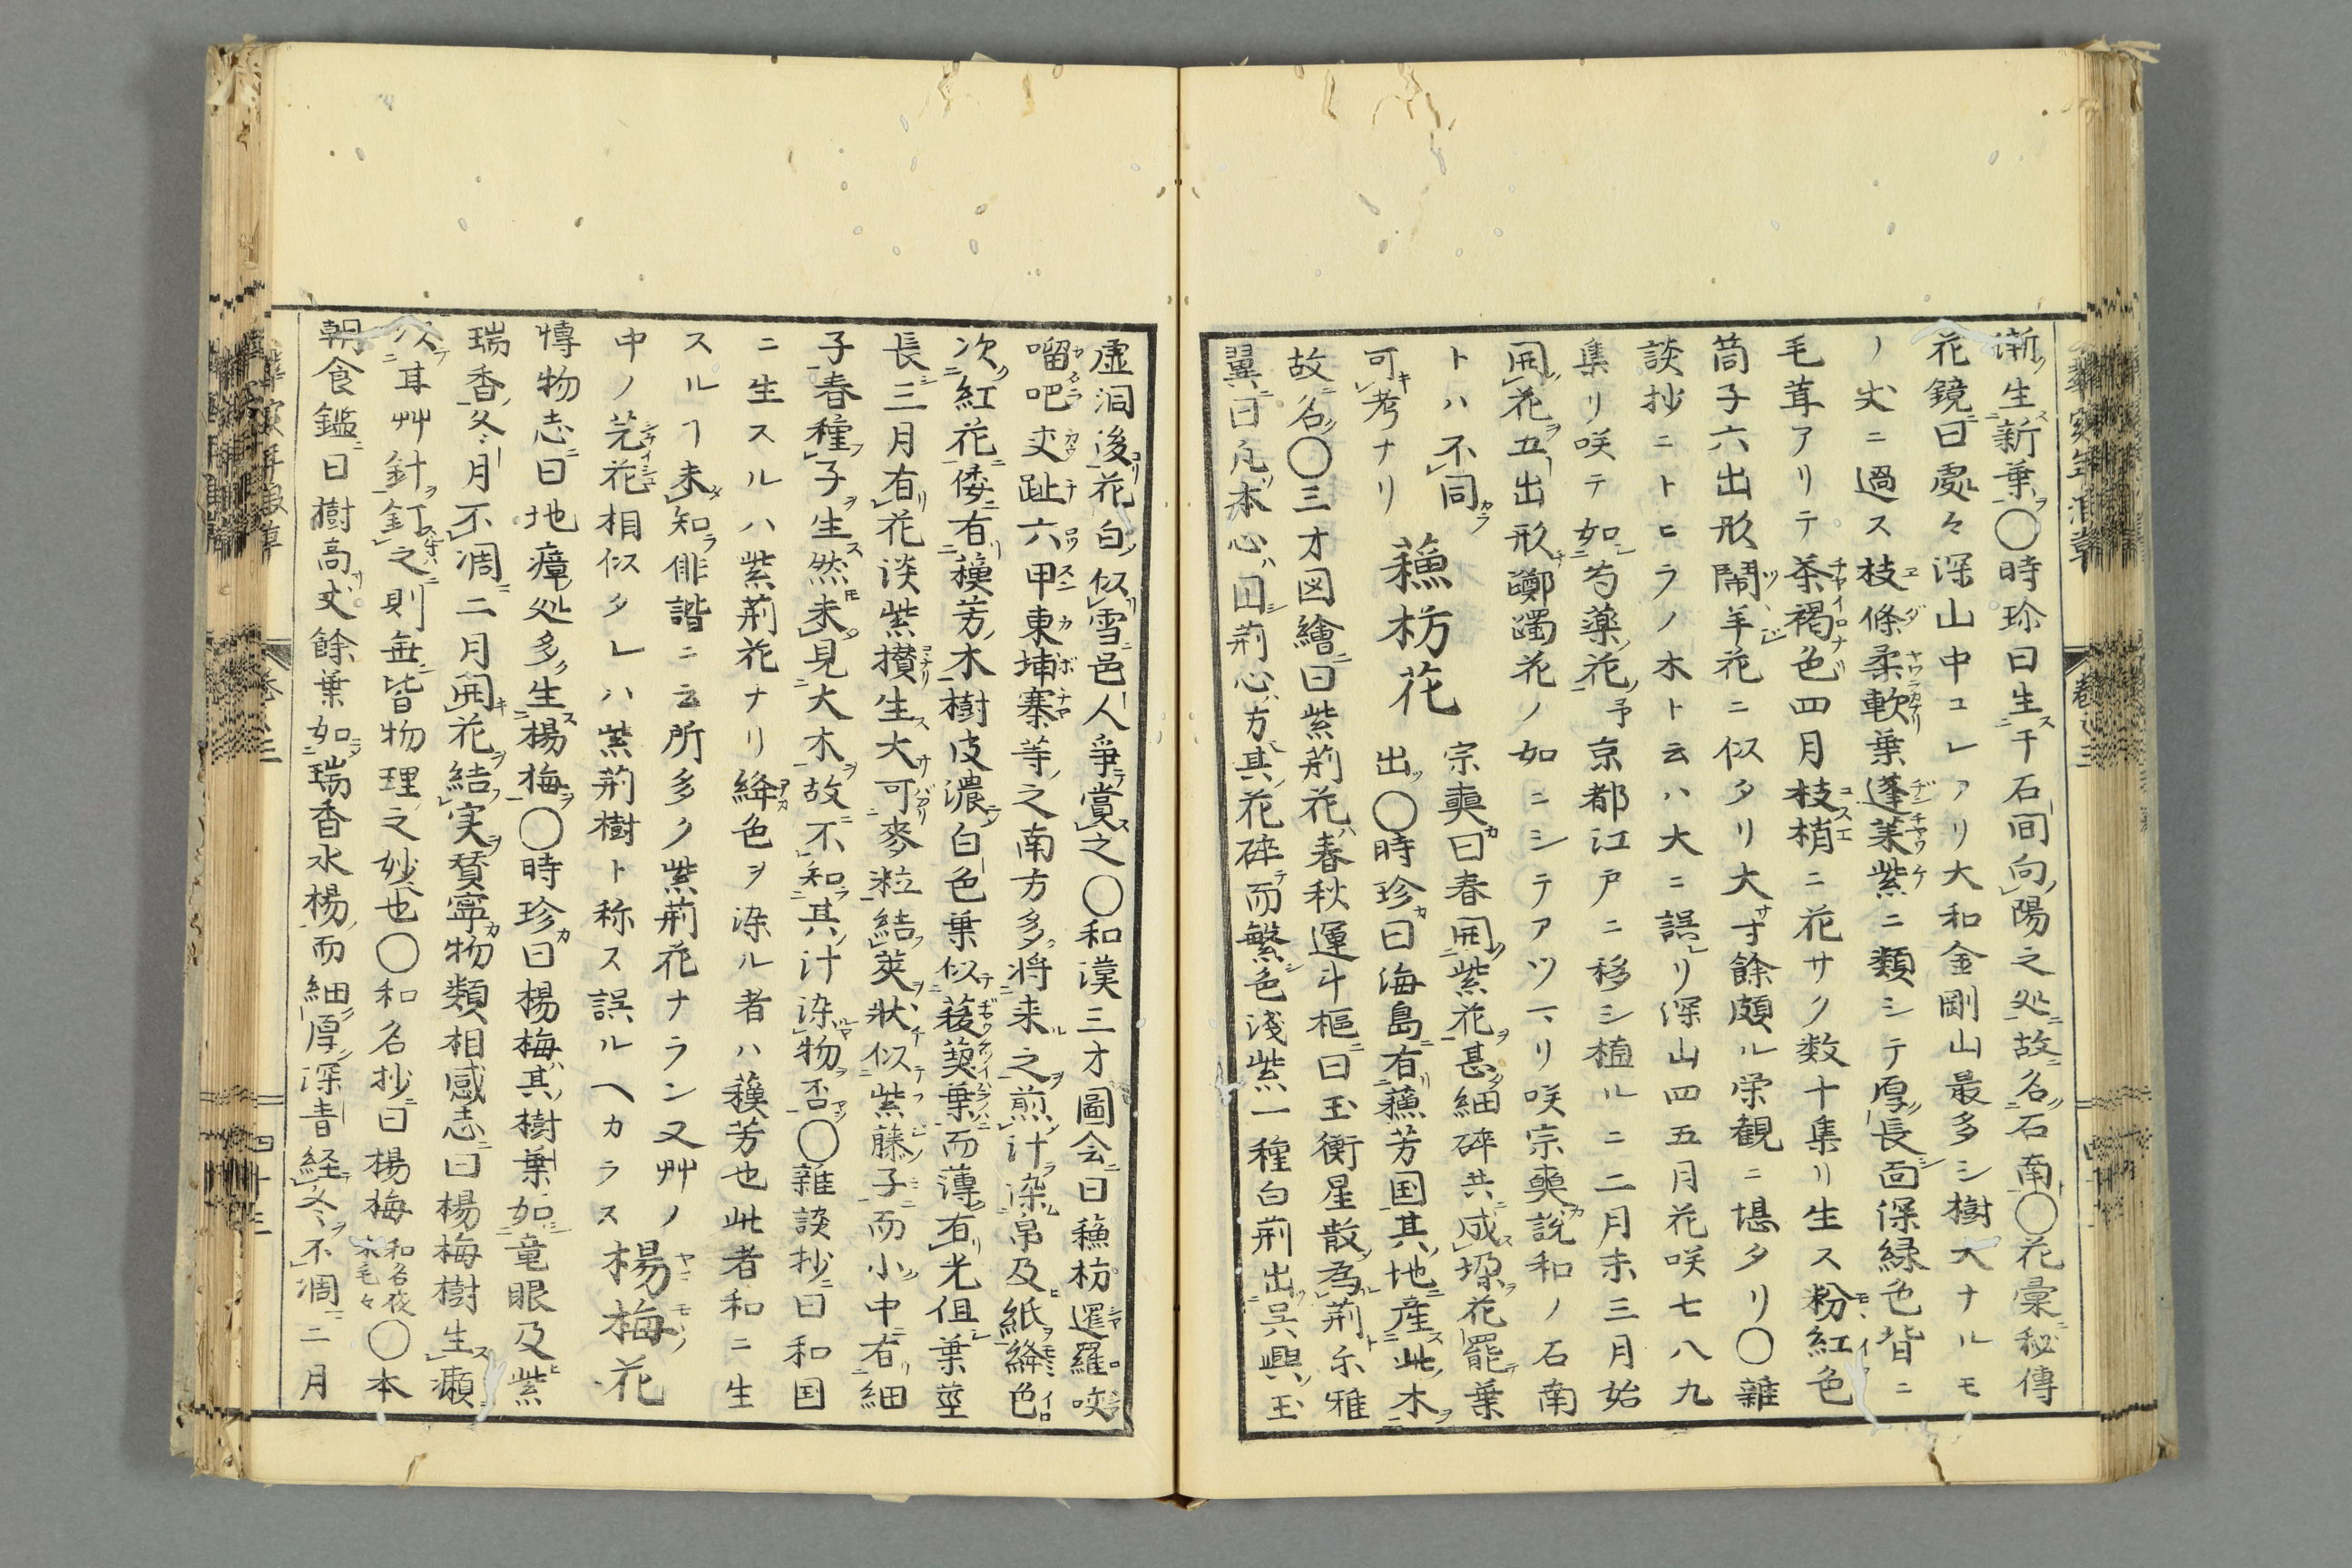 漸生新葉〇時珍曰生于石间向陽之処故名石南〇花彙秘傳
花鏡曰處々深山中コレアリ大和金剛山最多シ樹大ナルモ
ノ丈ニ過ス枝條柔軟葉蓬莱紫ニ類シテ厚長靣深緑色背ニ
毛茸アリテ茶褐色四月枝梢ニ花サク数十集リ生ス粉紅色
筒子六出形鬧羊花ニ似タリ大サ寸餘頗ル栄観ニ堪タリ〇雜
談抄ニトヒラノ木ト云ハ大ニ誤リ深山四五月花咲七八九
集リ咲テ如芍薬花予京都江戸ニ移シ植ルニ二月末三月始
開花五出形躑躅花ノ如ニシテアツマリ咲宗奭説和ノ石南
トハ不同
可考ナリ
蘓枋花
宗奭曰春開紫花甚細碎共成塚花罷葉
出〇時珍曰海島有蘓芳国其地産此木
故名〇三才図繪曰紫荊花春秋運斗樞曰玉衡星散為荊尓雅
翼曰凡木心囬荊心方其花碎而繁色淺紫一種白荊出呉興玉
虚洞後花白似雪邑人爭賞之〇和漢三才圖会曰蘓枋暹羅咬
𠺕吧交趾六甲東埔寨等之南方多将来之煎汁染帛及紙絳色
次紅花倭有蘓芳木樹皮濃白色葉似菝葜葉而薄有光但葉莖
長三月有花淡紫攅生大可麥粒結莢狀似紫藤子而小中有細
子春種子生然未見大木故不知其汁染物否〇雜談抄曰和国
ニ生スルハ紫荊花ナリ絳色ヲ染ル者ハ蘓芳也此者和ニ生
スルヿ未知俳諧ニ云所多ク紫荊花ナラン又艸ノ
中ノ芫花相似タレハ紫荊樹ト称ス誤ルヘカラス
楊梅花
博物志曰地瘴処多生楊梅〇時珍曰楊梅其樹葉如竜眼及紫
瑞香冬月不凋二月開花結実賛寧物類相感志曰楊梅樹生癩
以耳艸針釘之則無皆物理之妙也〇和名抄曰楊梅和名夜末毛々〇本
朝食鑑曰樹高丈餘葉如瑞香水楊而細厚深青経冬不凋二月